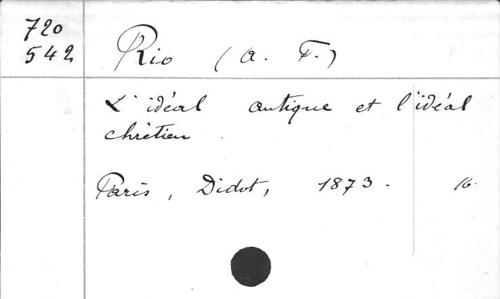 720
542
Rio (A. F.)
L'idéal antique et l'idéal
chrétien.
Paris, Didot, 1873. 16.